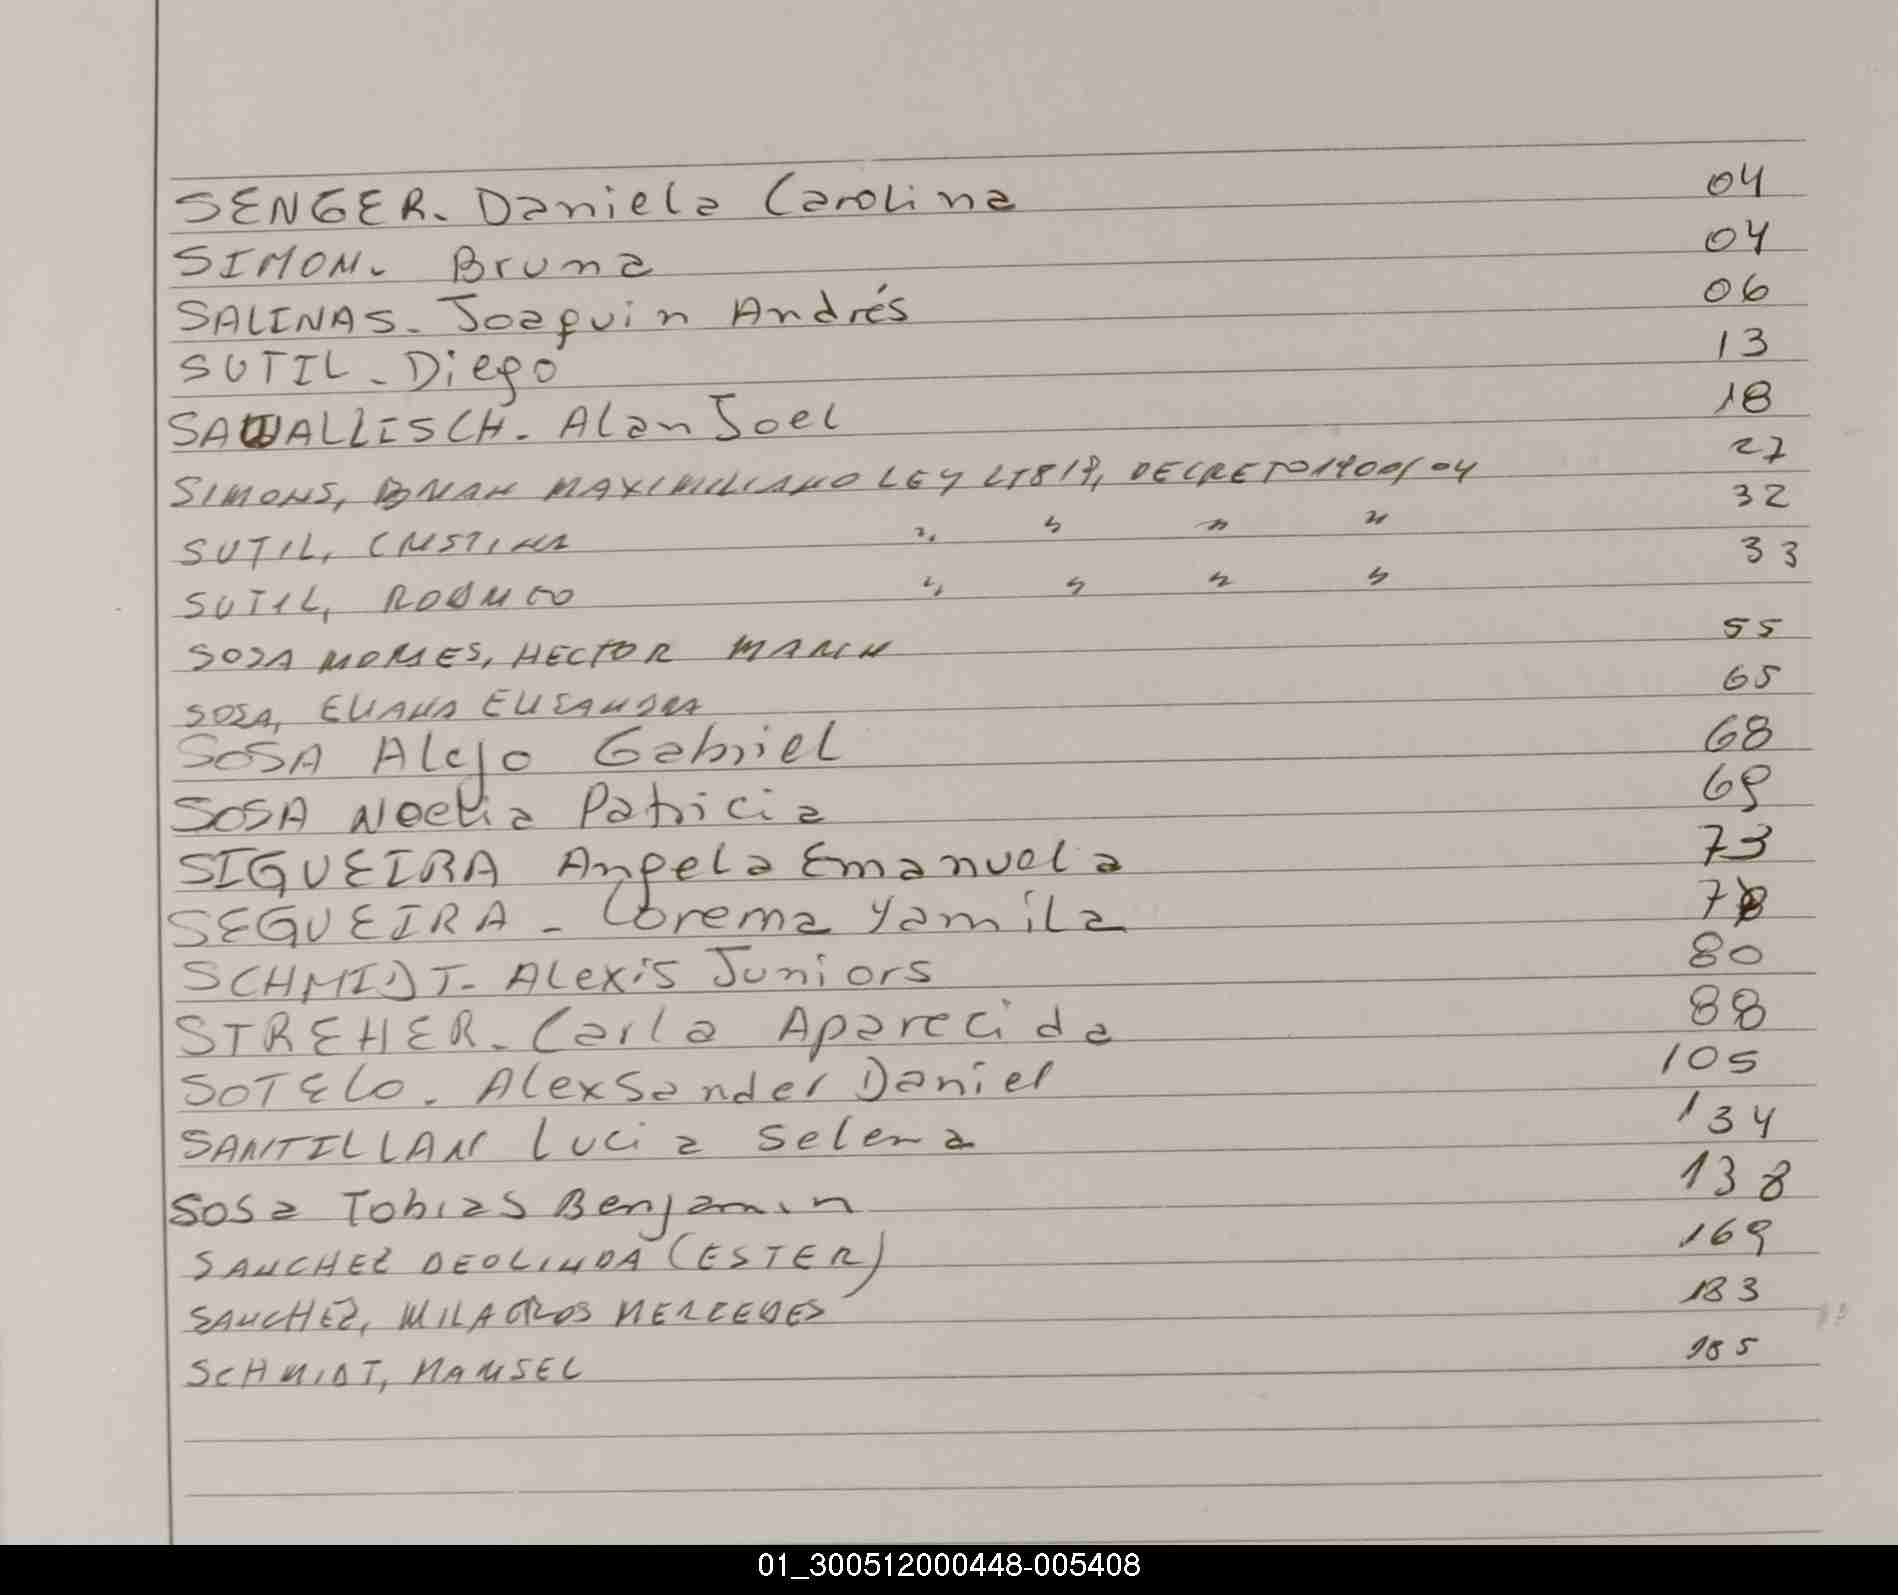 SENGER. Daniela Carolina 04
SIMON. Bruna 04
SALINAS. Joaquin Andrés 06
SUTIL. Diego 13
SAWALLISCH. Alan Joel 18
SIMONS, BRIAN MAXIMILIANO LEY DECRETO 1900/04 27
SUTIL, CRISTINA " " " " 32
SUTIL, RODRIGO " " " " 33
SOSA MORAES, HECTOR 55
SOSA, ELIANA 65
SOSA Alejo Gabriel 68
SOSA Noelia Patricia 69
SIGUEIRA Angela Emanuela 73
SEGUEIRA - Lorema Yamila 78
SCHMIDT. Alexis Juniors 80
STREHER. Carla Aparecida 88
SOTELO. Alexsander Daniel 105
SANTILLAN Lucia Selena 134
Sosa Tobias Benjamin 138
SANCHEZ DEOLINDA (ESTER) 169
SANCHEZ, MILAGROS MERCEDES 183
SCHMIDT, HANSEL 185
01_300512000448-005408